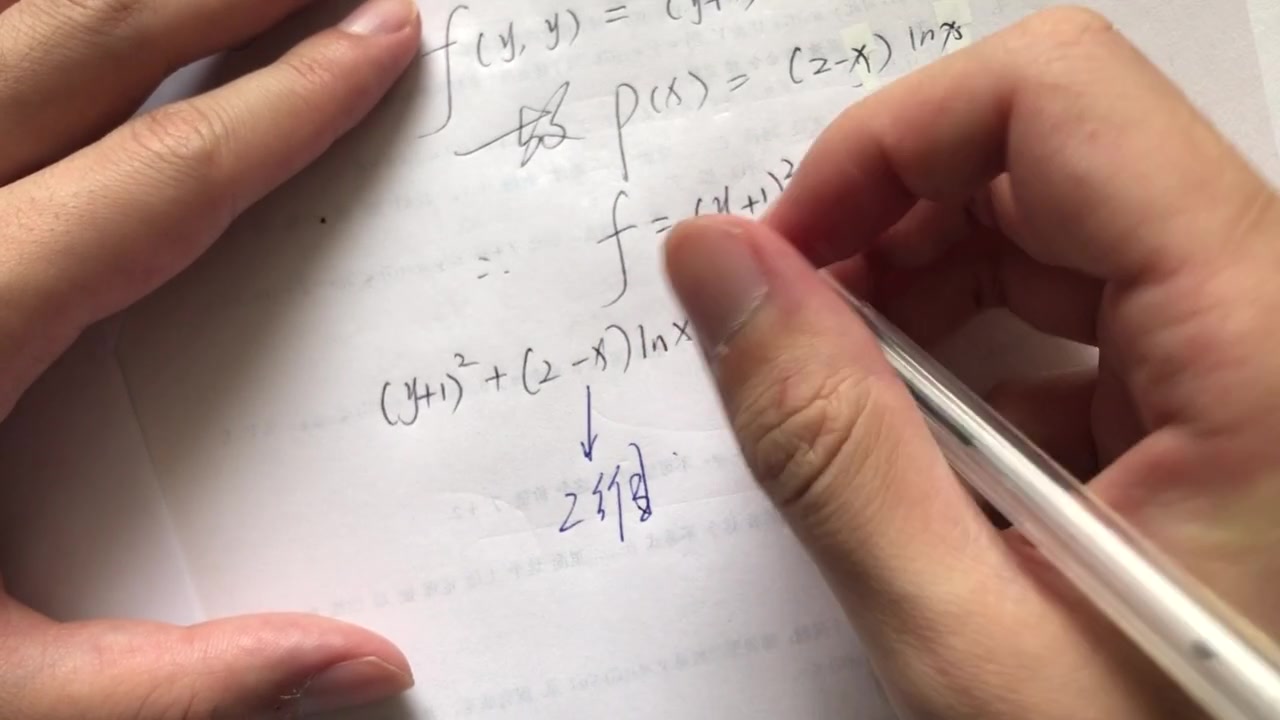 f(y, y) = (y+
p(x) = (2-x) lnx
∴ f = (y+1)²
(y+1)² + (2-x) lnx
↓
2组